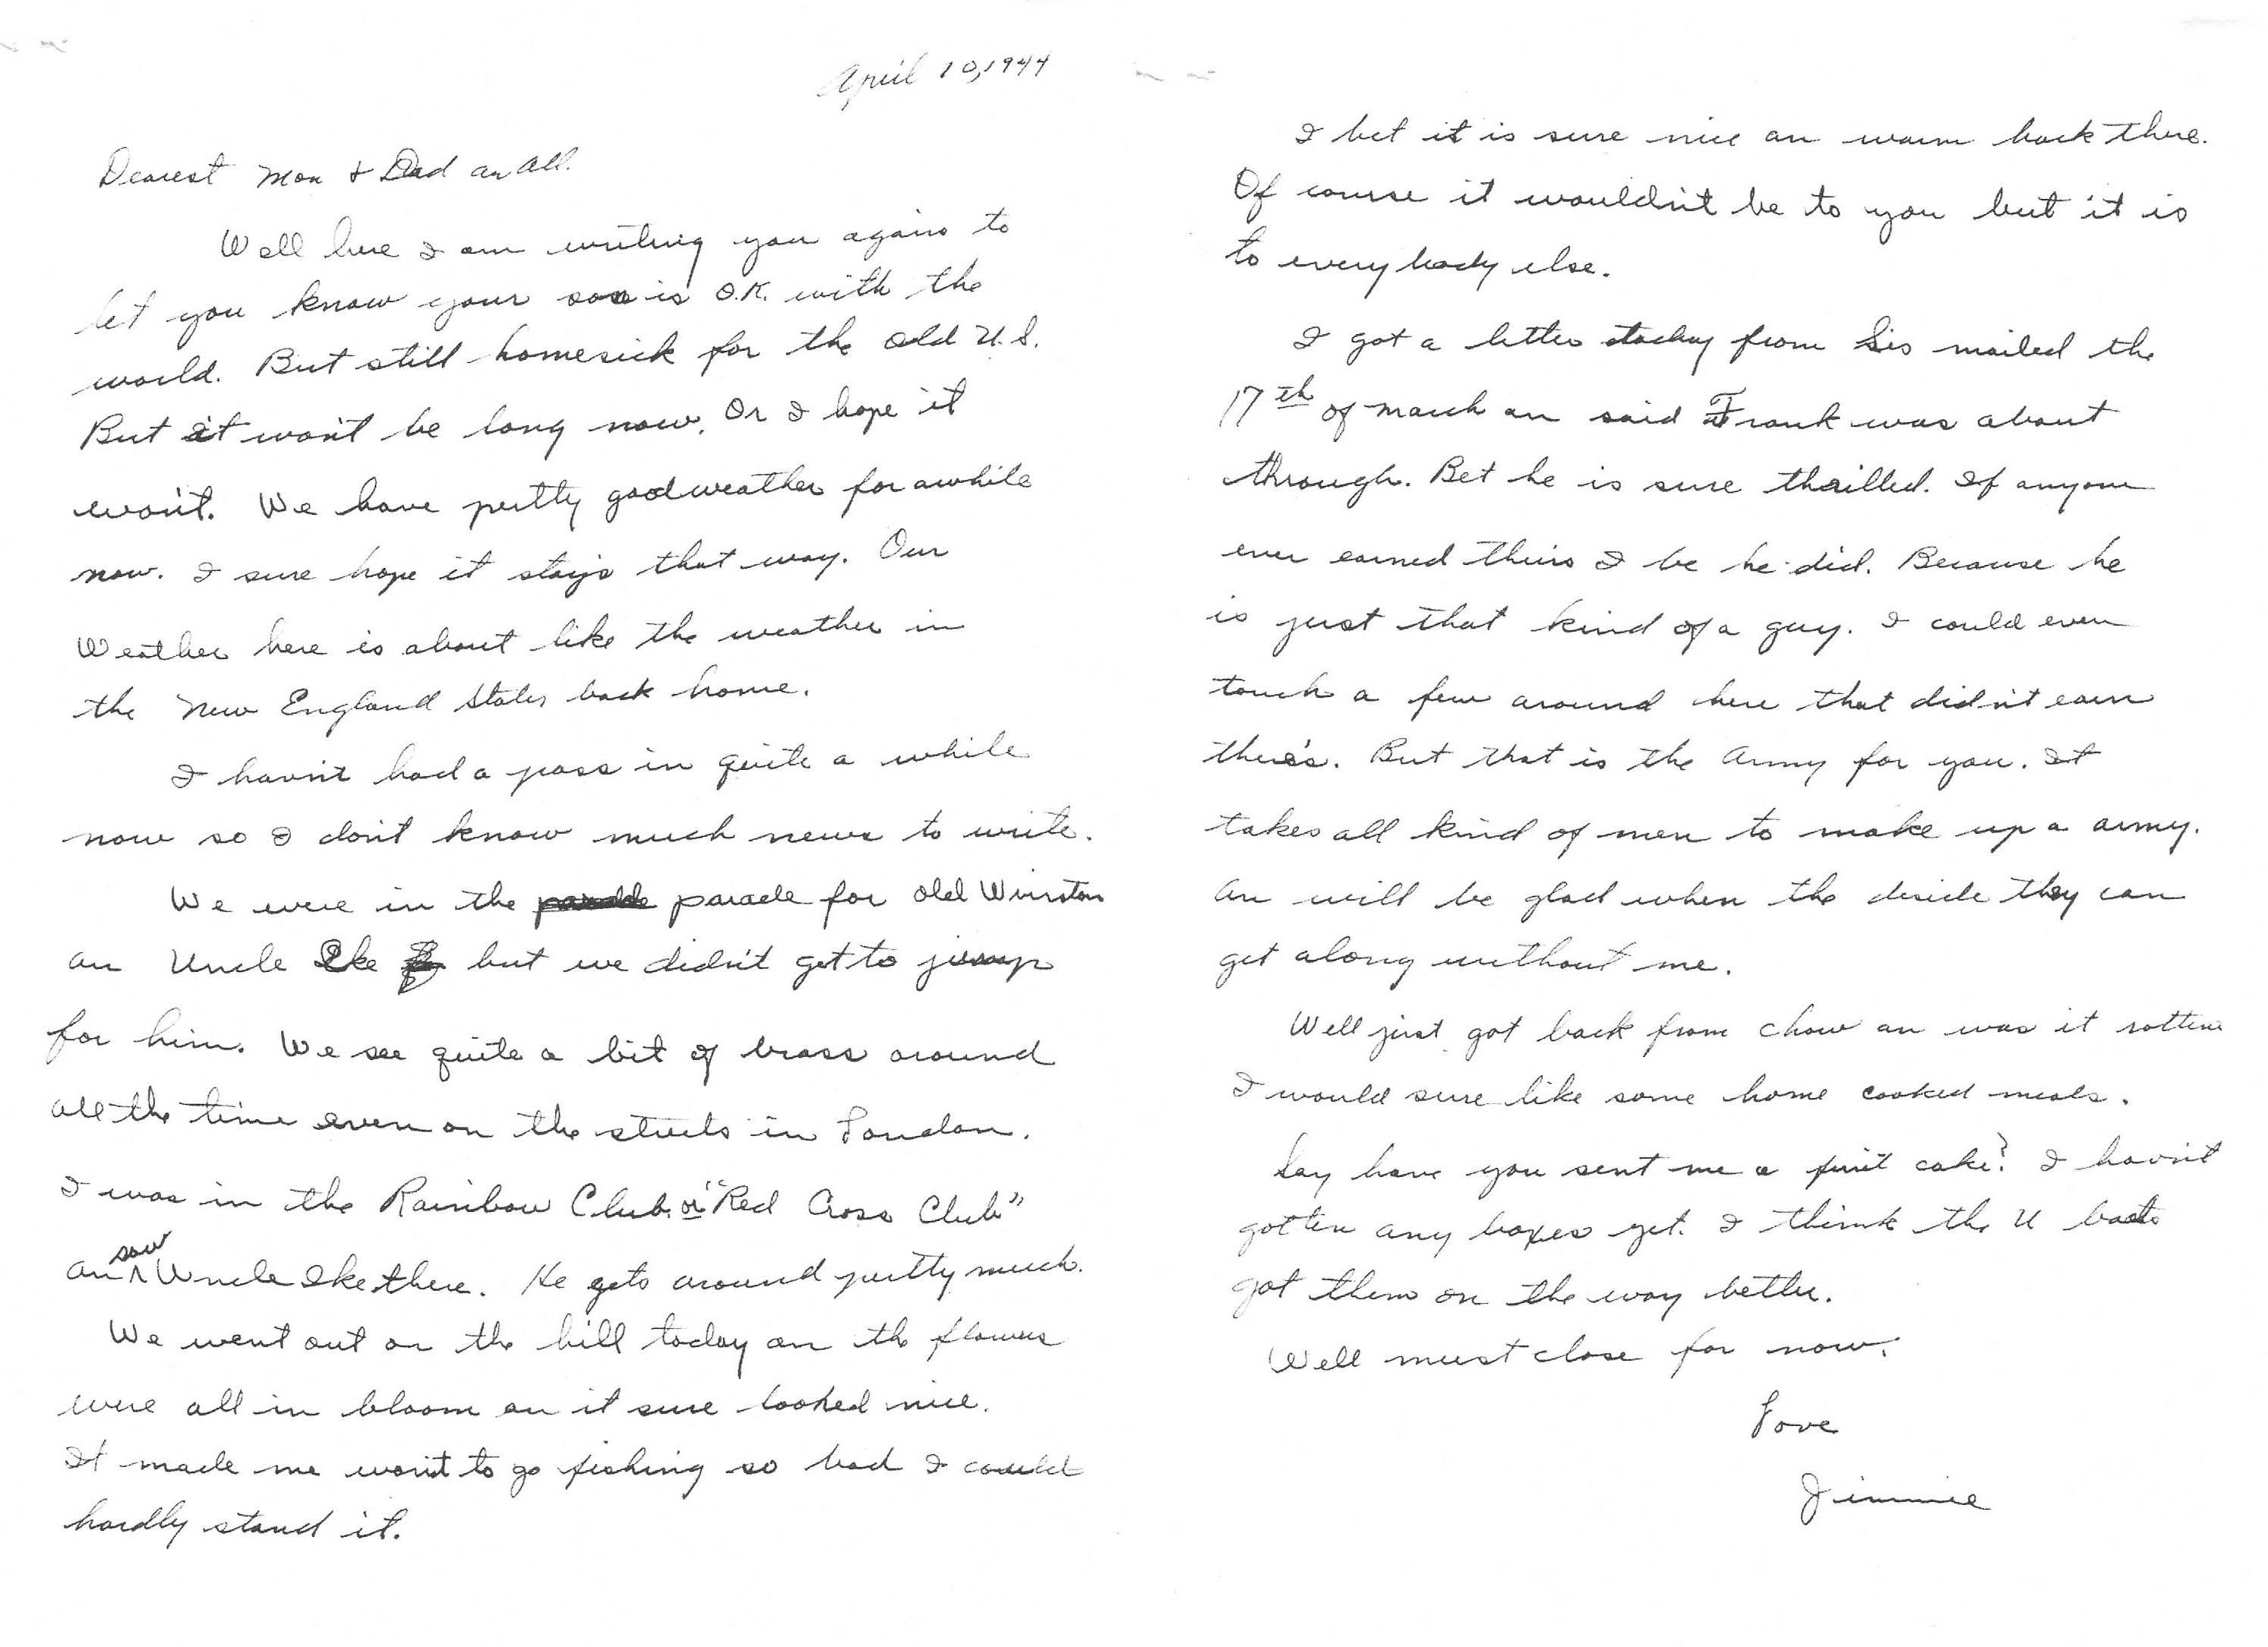 April 10, 1944
Dearest Mom & Dad an all.
Well here I am writing you again to
let you know your son is O.K. with the
world. But still homesick for the old U.S.
But it won't be long now. Or I hope it
won't. We have pretty good weather for awhile
now. I sure hope it stays that way. Our
Weather here is about like the weather in
the New England States back home.
I havn't had a pass in quite a while
now so I don't know much news to write.
We were in the parade for old Winston
an Uncle Ike but we didn't get to jump
for him. We see quite a bit of brass around
all the time even on the streets in London.
I was in the Rainbow Club or "Red Cross Club"
an saw Uncle Ike there. He gets around pretty much.
We went out on the hill today an the flowers
were all in bloom an it sure looked nice.
It made me want to go fishing so bad I could
hardly stand it.
I bet it is sure nice an warm back there.
Of course it wouldn't be to you but it is
to every body else.
I got a letter today from Sis mailed the
17th of March an said Frank was about
through. Bet he is sure thrilled. If anyone
ever earned theirs I be he did. Because he
is just that kind of a guy. I could even
touch a few around here that didn't earn
there's. But that is the Army for you. It
takes all kind of men to make up a army.
An will be glad when the deside they can
get along without me.
Well just got back from chow an was it rotten
I would sure like some home cooked meals.
Say have you sent me a fruit cake? I havn't
gotten any boxes yet. I think the U boats
got them on the way better.
Well must close for now.
Love
Jimmie